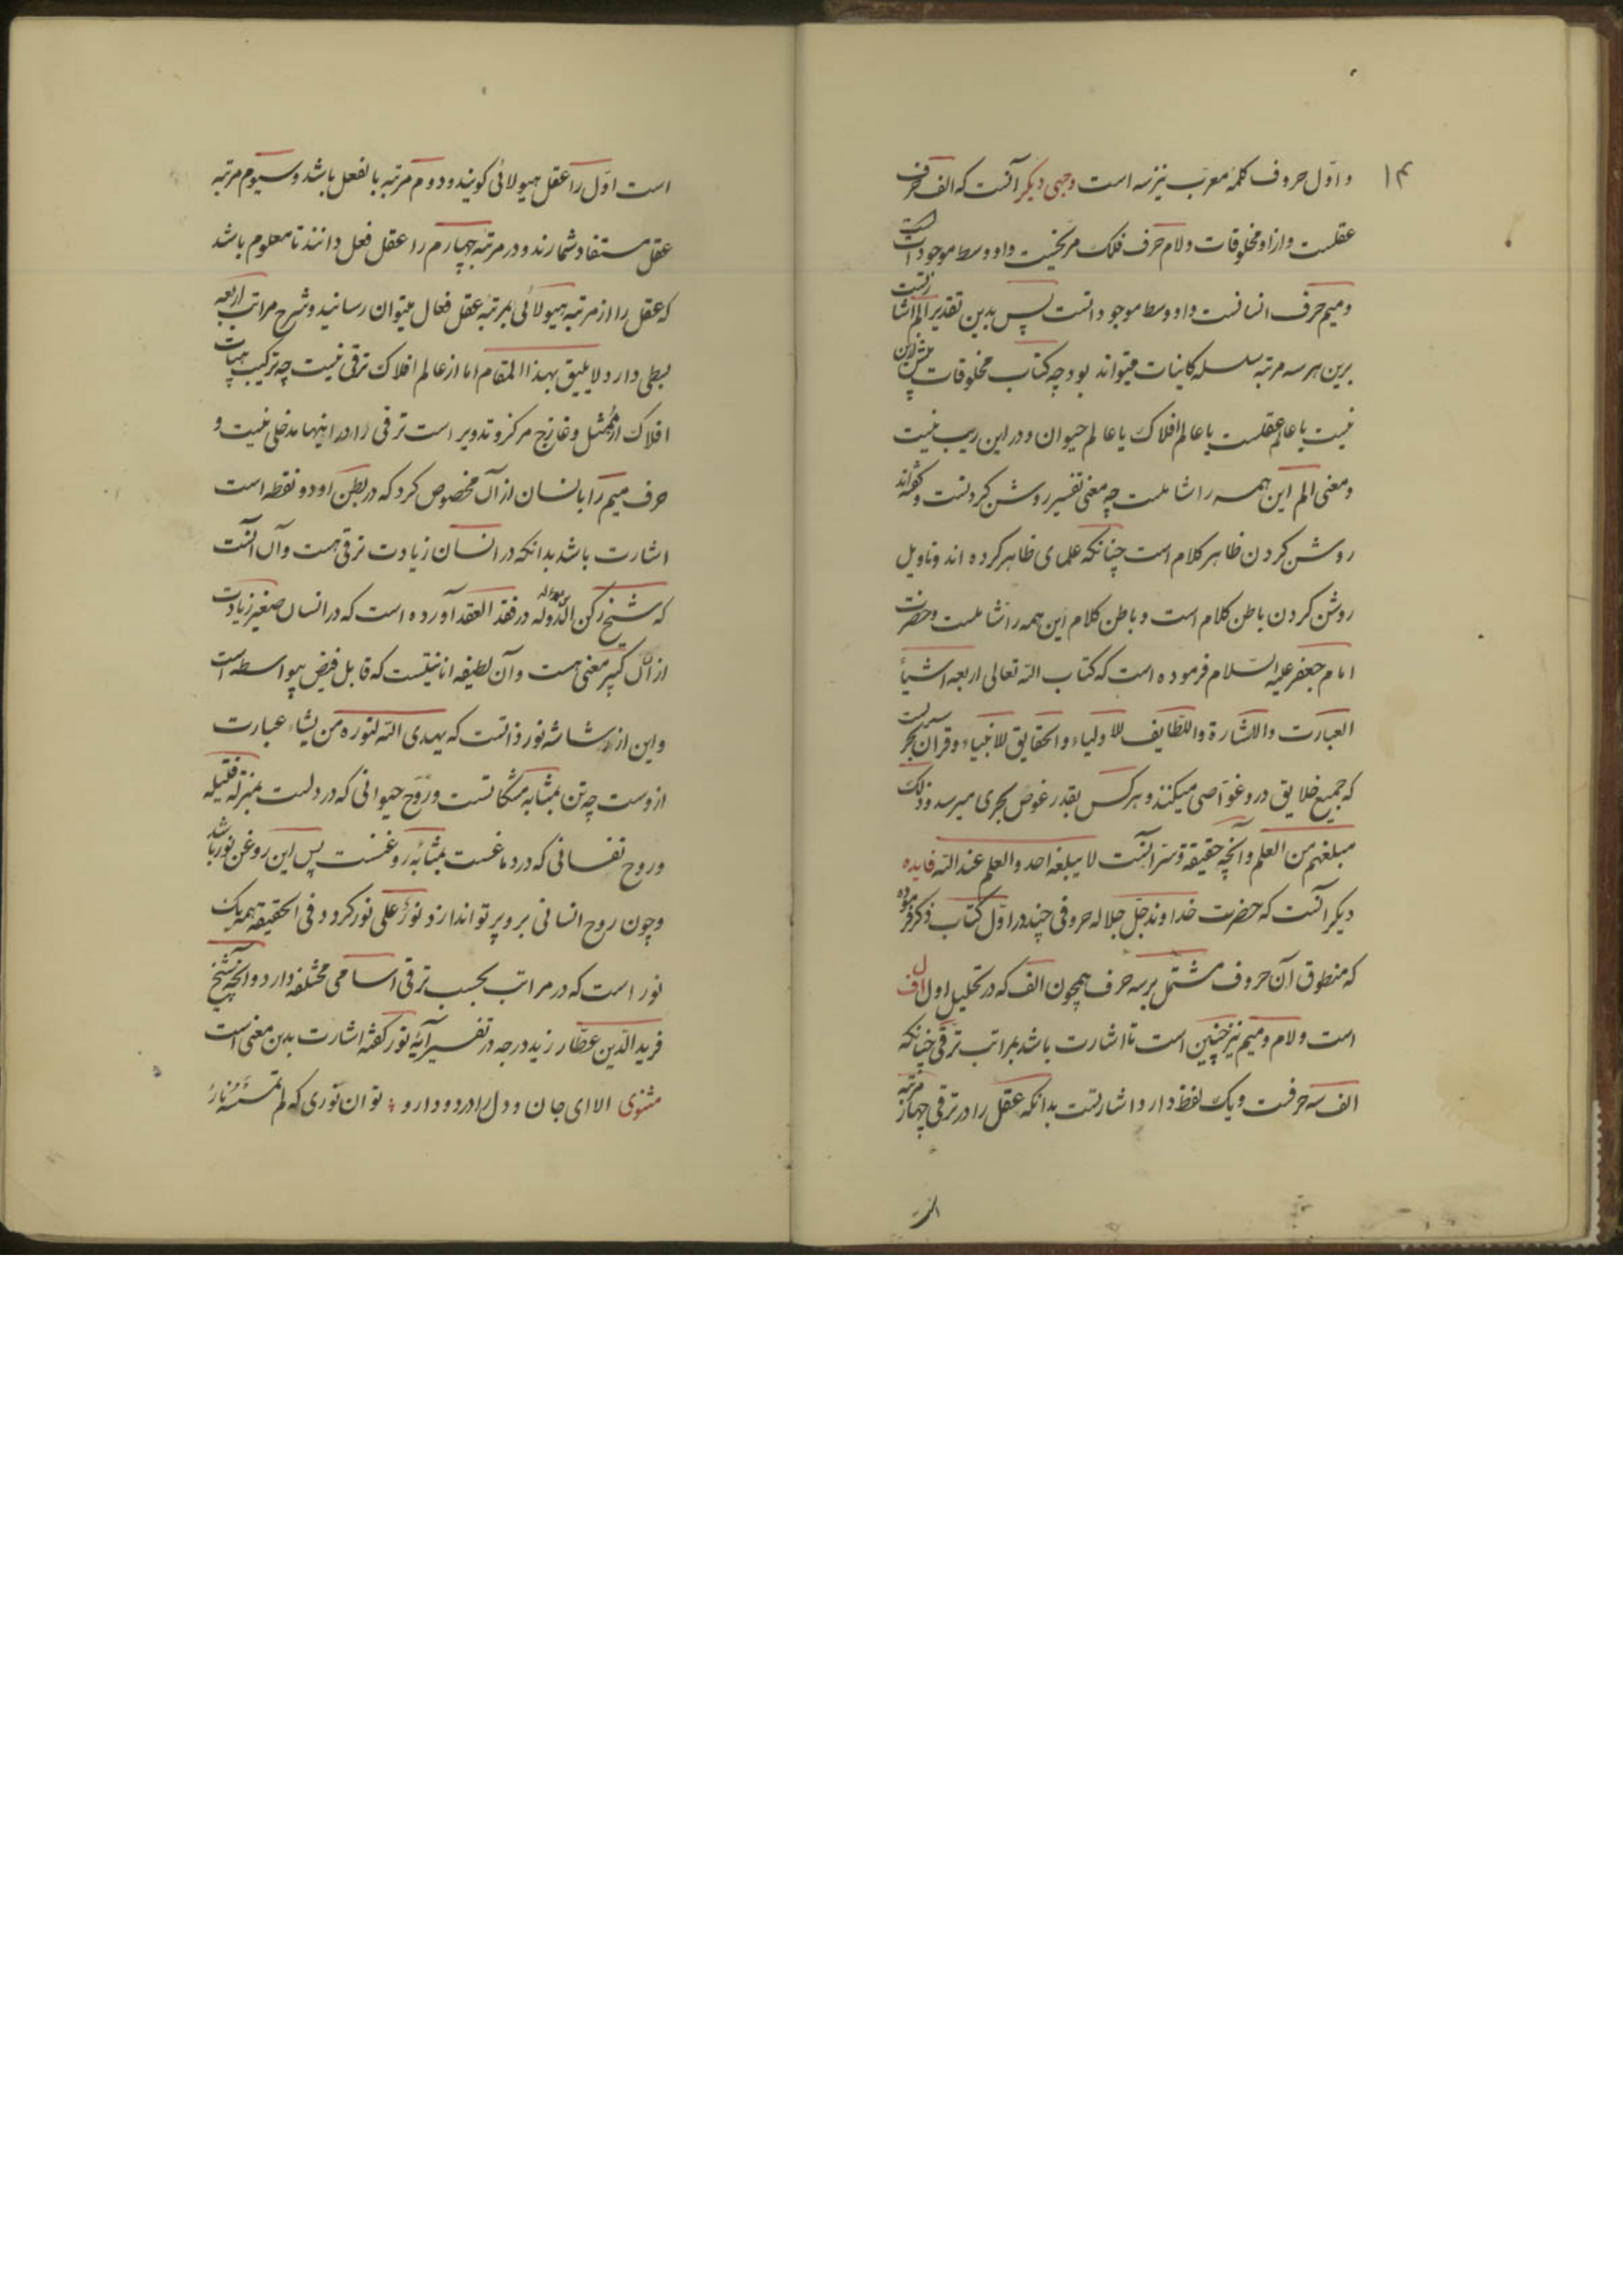 ۱۴
و اوّل حروف کلمهٔ معرب نیز سه است وجهی دیکر آنست که الف حرف
عقلست و از او مخلوقات و لام حرف فلک مریخیست و او وسط موجوداتست
و میم حرف انسانست و او وسط موجوداتست پس بدین تقدیر الم اشارتست
برین هر سه مرتبه سلسله کاینات میتواند بود چه کتاب مخلوقات بیش ازین
نیست یا عالم عقلست یا عالم افلاک یا عالم حیوان و در این ریب نیست
و معنی الم این همه را شاملست چه معنی تفسیر روشن کردنست و کفته‌اند
روشن کردن ظاهر کلام است چنانکه علمای ظاهر کرده اند و تاویل
روشن کردن باطن کلام است و باطن کلام این همه را شاملست و حضرت
امام جعفر علیه السلام فرموده است که کتاب الله تعالی اربعه اشیآ
العبارت والاشارة واللطایف للاولیاء والحقایق للانبیاء و قران بحریست
که جمیع خلایق درو غوّاصی میکنند و هر کس بقدر غوص بحری میرسد و ذلک
مبلغهم من العلم و آنچه حقیقة و سرّ آنست لا یبلغه احد والعلم عند الله فایده
دیکر آنست که حضرت خداوند جلّ جلاله حروفی چند در اوّل کتاب ذکر فرموده
که منطوق آن حروف مشتمل بر سه حرف همچون الف که در تحلیل اول ا ل ف
است و لام و میم نیز چنین است تا اشارت باشد بمراتب ترقی چنانکه
الف سه حرفست و یک نقطه دارد اشارتست بدانکه عقل را در ترقی چهار مرتبه
است اوّل را عقل هیولائی کویند و دوم مرتبه بالفعل باشد و سیوم مرتبه
عقل مستفاد شمارند و در مرتبه چهارم را عقل فعل دانند تا معلوم باشد
که عقل را از مرتبه هیولائی بمرتبهٔ عقل فعال میتوان رسانید و شرح مراتب اربعه
بسطی دارد لا یلیق بهذا المقام اما از عالم افلاک ترقی نیست چه ترکیب هیات
افلاک از ممثل و خارج مرکز و تدویر است ترقی را در اینها مدخلی نیست و
حرف میم را بانسان از آن مخصوص کرد که در بطن او دو نقطه است
اشارت باشد بدانکه در انسان زیادت ترقی هست و آن آنست
که شیخ رکن الدوله در فقد العقد آورده است که در انسان صغیر زیادت
از آن کبیر معنی هست و آن لطیفه انانیتست که قابل فیض بیواسطه است
و این از رشاشه نور ذاتست که یهدی الله لنوره من یشاء عبارت
ازوست چه تن بمثابه مشکاتست و روح حیوانی که در دلست بمنزله فتیله
و روح نفسانی که در دماغست بمثابهٔ روغنست پس این روغن نور باشد
و چون روح انسانی برو پرتو اندازد نورٌ علی نور کردد و فی الحقیقه همه یک
نور است که در مراتب بحسب ترقی اسامی مختلفه دارد و آنچه شیخ
فرید الدین عطار زید درجه در تفسیر آیهٔ نور کفته اشارت بدین معنی است
مثنوی الا ای جان و دل را درد و دارو ؛ تو ان نوری که لم تمسسه نارُ